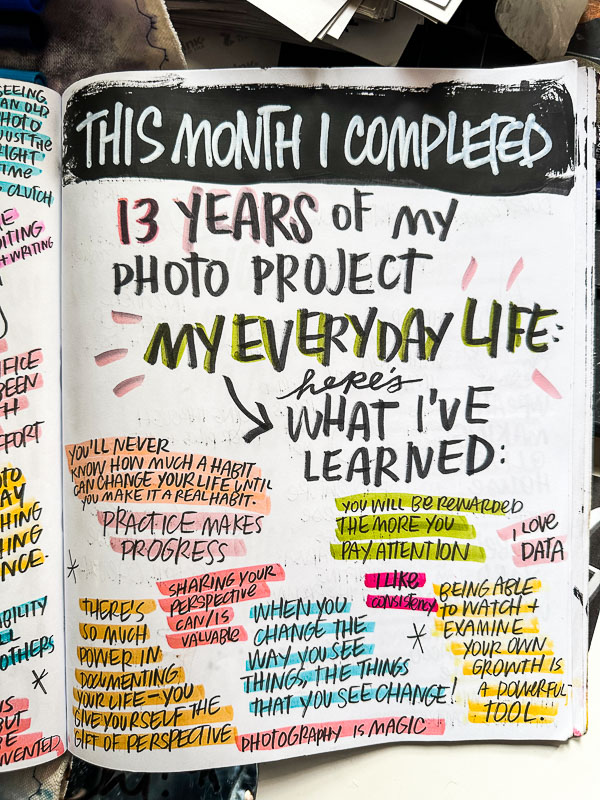 SEEING
AN OLD
PHOTO
JUST THE
RIGHT
TIME
CLUTCH
EDITING
+ WRITING
BEEN
EFFORT
THIS MONTH I COMPLETED
13 YEARS OF MY
PHOTO PROJECT
MY EVERYDAY LIFE:
here's
WHAT I'VE
LEARNED:
YOU'LL NEVER
KNOW HOW MUCH A HABIT
CAN CHANGE YOUR LIFE UNTIL
YOU MAKE IT A REAL HABIT.
PRACTICE MAKES
PROGRESS
YOU WILL BE REWARDED
THE MORE YOU
PAY ATTENTION
I LOVE
DATA
SHARING YOUR
PERSPECTIVE
CAN/IS
VALUABLE
I LIKE
consistency
THERE'S
SO MUCH
POWER IN
DOCUMENTING
YOUR LIFE—YOU
GIVE YOURSELF THE
GIFT OF PERSPECTIVE
WHEN YOU
CHANGE THE
WAY YOU SEE
THINGS, THE THINGS
THAT YOU SEE CHANGE!
BEING ABLE
TO WATCH +
EXAMINE
YOUR OWN
GROWTH IS
A POWERFUL
TOOL.
PHOTOGRAPHY IS MAGIC
OTHERS